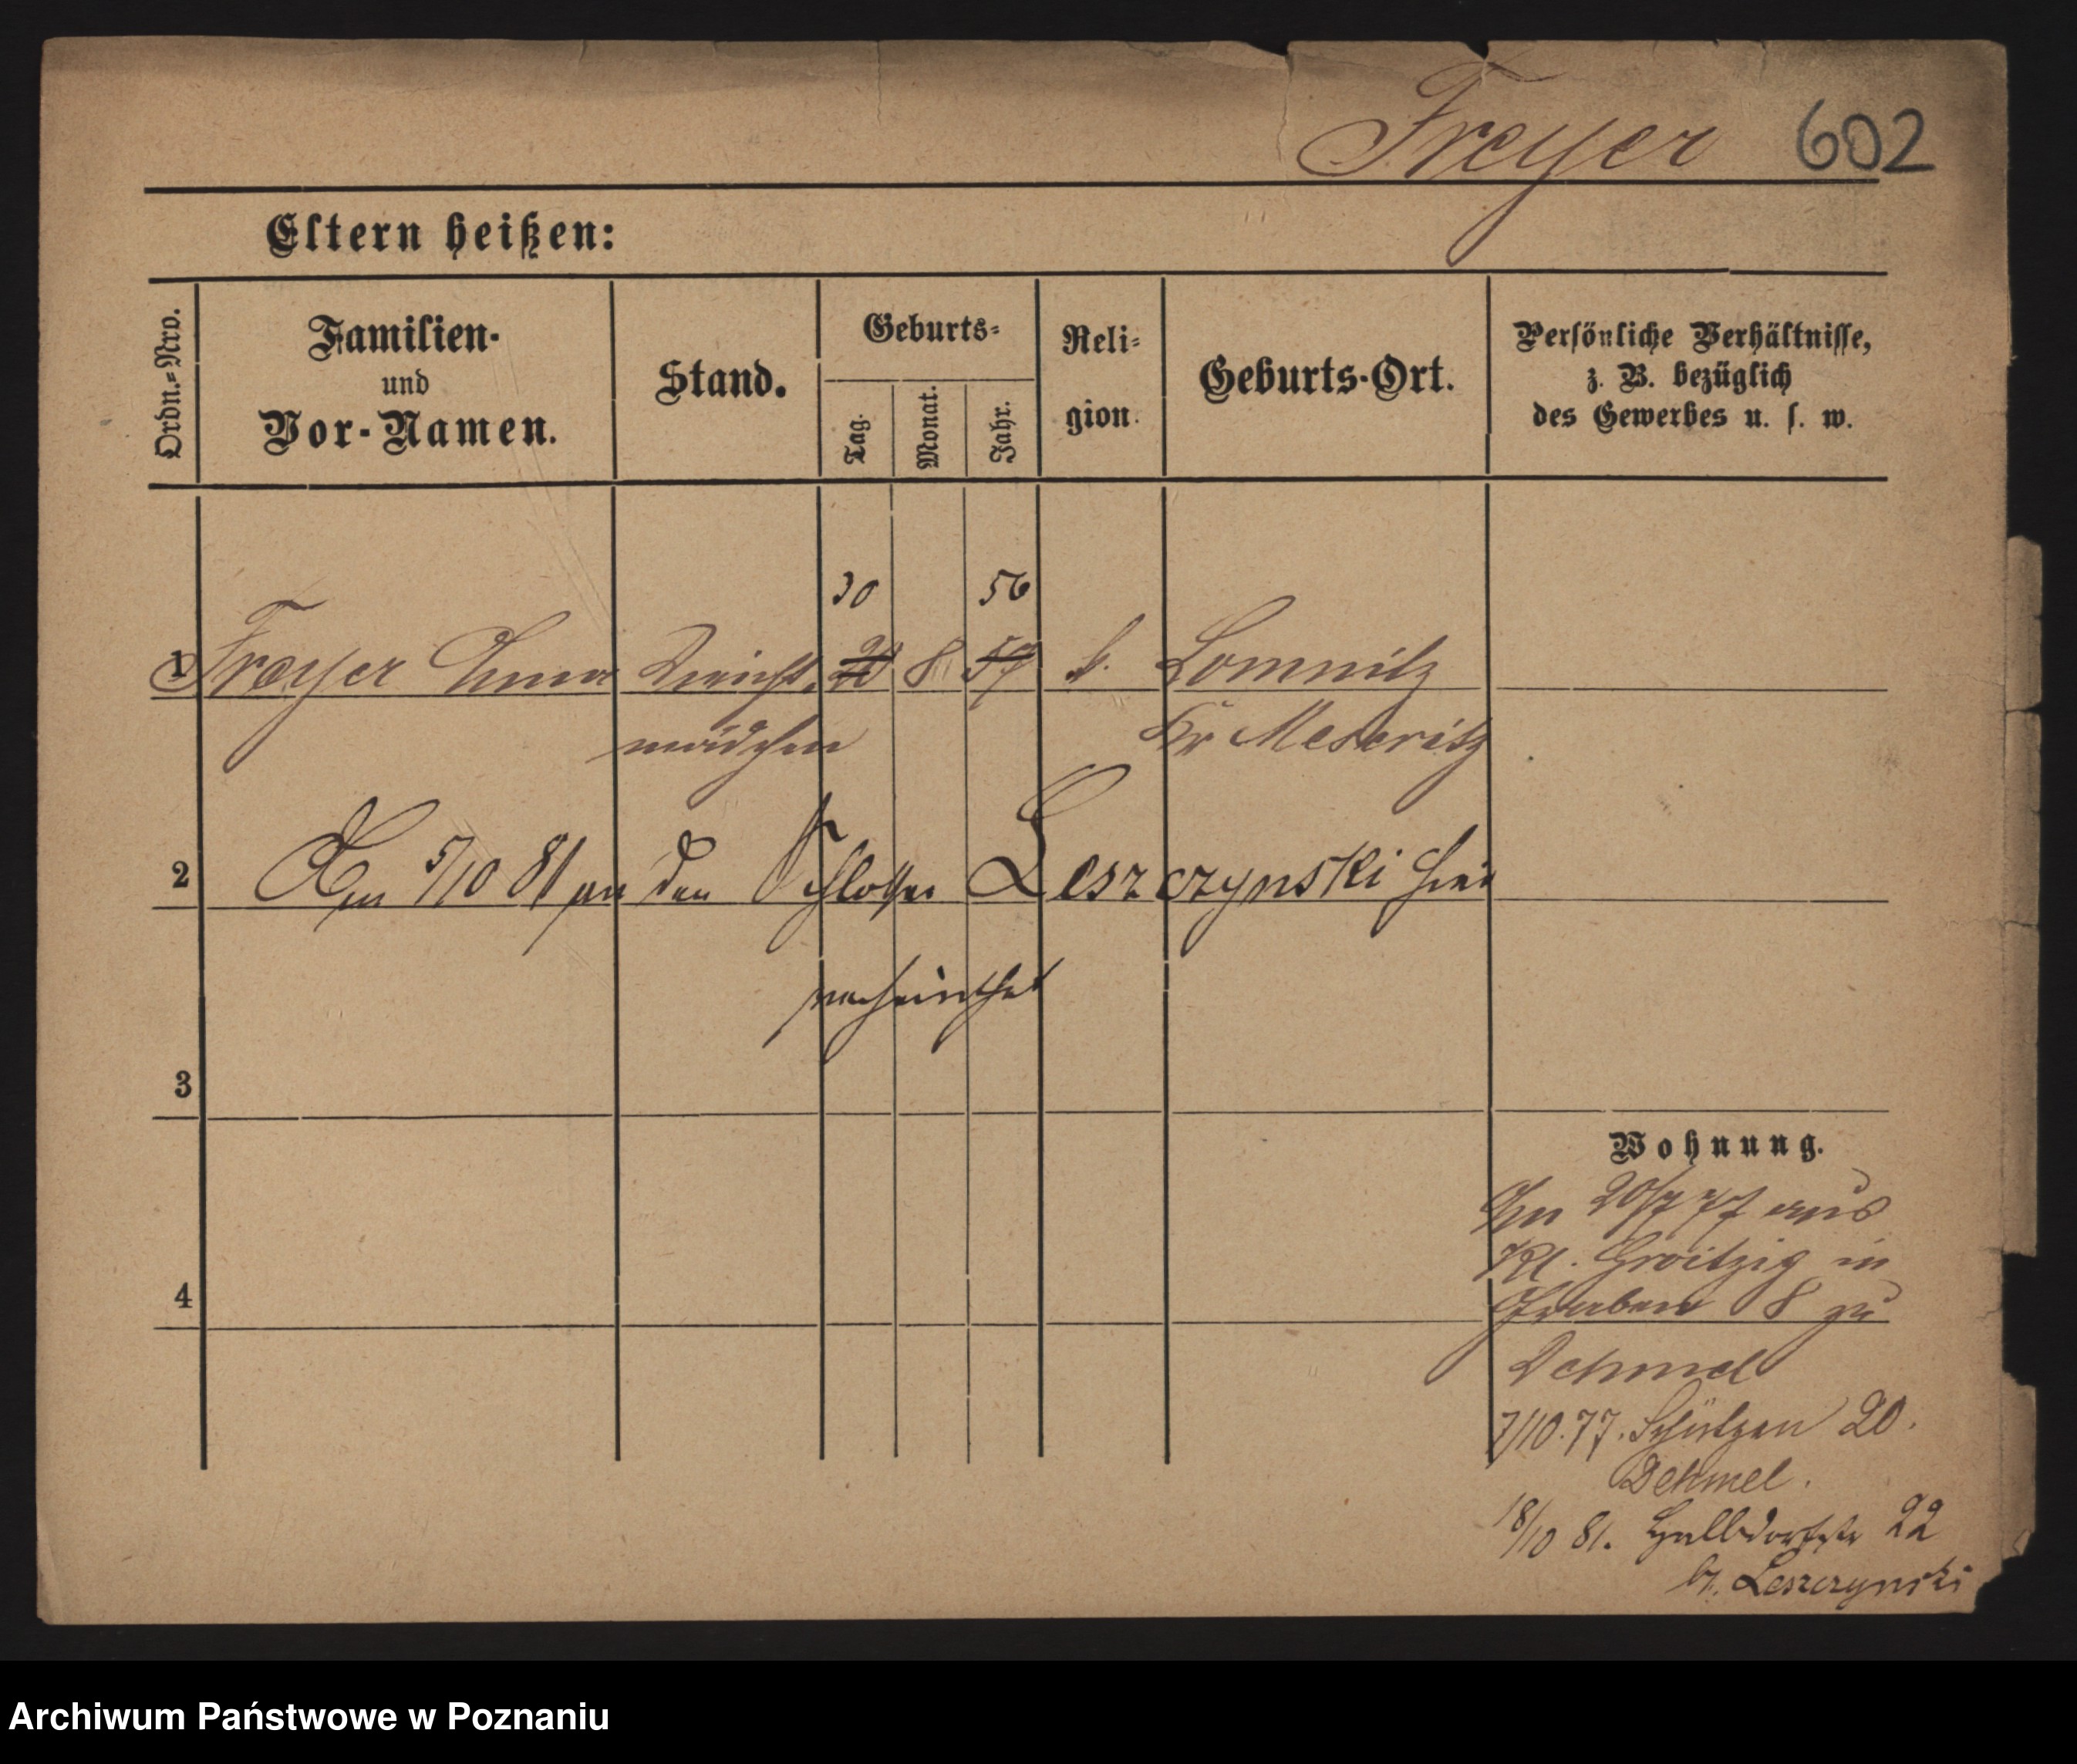 Freyer 602
Eltern heißen:
Ordn.=Nro.
Familien-
und
Vor-Namen.
Stand.
Geburts=
Tag.
Monat.
Jahr.
Reli=
gion.
Geburts-Ort.
Persönliche Verhältnisse,
z. B. bezüglich
des Gewerbes u. s. w.
30 56
1 Freyer Anna Dienst- 20 8 57 k. Lomnitz
mädchen Kr Meseritz
2 Am 5/10 81 an den Schlosser Leszczynski hier
verheirathet
3
Wohnung.
Am 20/7 77 aus
Kl. Groitzig in
4 Graben 8 zu
Dehmel
7/10.77. Schützen 20.
Dehmel.
18/10 81. Halbdorfstr 22
b. Leszczynski
Archiwum Państwowe w Poznaniu